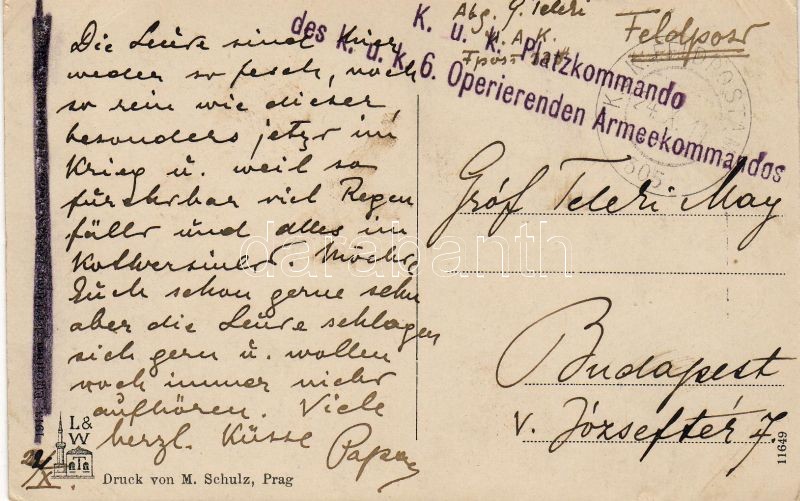 Die Leute sind hier
weder so fesch, noch
so rein wie dieser,
besonders jetzt im
Krieg u. weil so
furchtbar viel Regen
fällt und alles im
Koth versinkt. Möchte
Euch schon gerne sehn
aber die Leute schlagen
sich gern u. wollen
noch immer nicht
aufhören. Viele
herzl. Küsse Papa
24/X
L&W
Druck von M. Schulz, Prag
Abg. G. Teleki
Feldpost
K. u. k. Platzkommando
des K. u. k. 6. Operierenden Armeekommandos
305
Gróf Teleki May
Budapest
V. Józseftér 7.
11649
darabanth